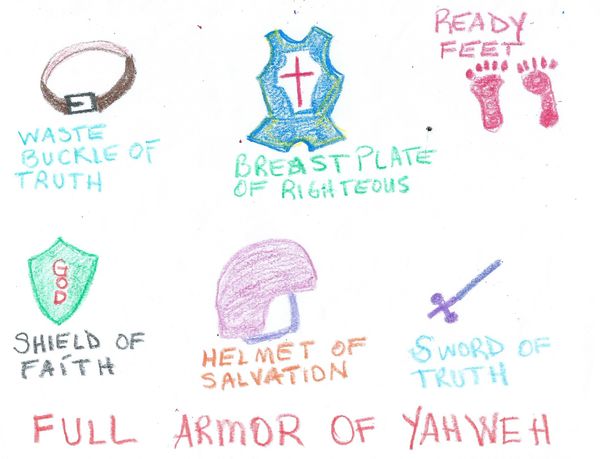 READY
FEET
WASTE
BUCKLE OF
TRUTH
BREAST PLATE
OF RIGHTEOUS
GOD
SHIELD OF
FAITH
HELMET OF
SALVATION
SWORD OF
TRUTH
FULL ARMOR OF YAHWEH